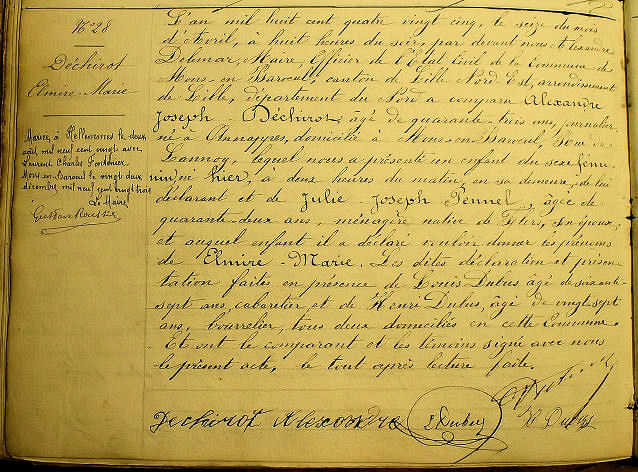 N° 28
Déchirot
Elmire-Marie
Mariée à Hellemmes le deux
août mil neuf cent vingt avec
Laurent Charles
Mons-en-Baroeul le vingt deux
décembre mil neuf cent vingt trois
Le Maire
L'an mil huit cent quatre vingt cinq, le seize du mois
d'Avril, à huit heures du soir, par devant nous Alexandre
Delemar, Maire, Officier de l'État Civil de la Commune de
Mons-en-Baroeul, canton de Lille Nord-Est, arrondissement
de Lille, département du Nord a comparu Alexandre
Joseph Déchirot, âgé de quarante-trois ans, journalier
né à Annappes, domicilié à Mons-en-Baroeul, Rue de
Lannoy, lequel nous a présenté un enfant du sexe fémi-
nin, né hier, à deux heures du matin, en sa demeure, de lui
déclarant et de Julie Joseph Pennel, âgée de
quarante-deux ans, ménagère native de Flers, son épouse,
et auquel enfant il a déclaré vouloir donner les prénoms
de Elmire-Marie. Les dites déclaration et présen-
tation faites en présence de Louis Dubus âgé de soixante-
sept ans, cabaretier, et de Henri Dubus, âgé de vingt-sept
ans, bourrelier, tous deux domiciliés en cette Commune.
Et ont le comparant et les témoins signé avec nous
le présent acte, le tout après lecture faite.
Dechirot Alexandre
L Dubus
H Dubus